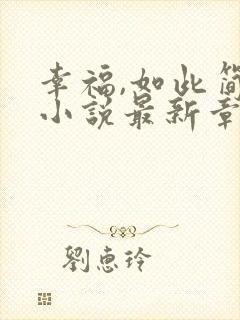 幸福,如此简
小说最新章
劉惠玲